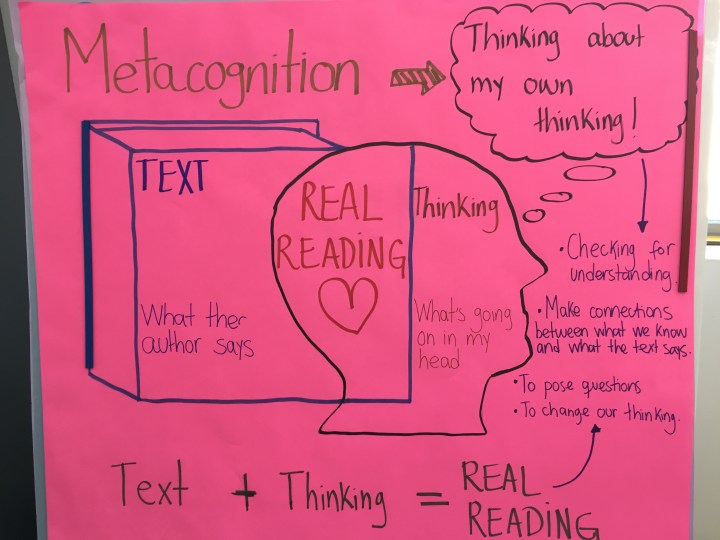 Metacognition
Thinking about
my own
thinking!
TEXT
What ther
author says
REAL
READING
Thinking
What's going
on in my
head
• Checking for
understanding.
• Make connections
between what we know
and what the text says.
• To pose questions
• To change our thinking.
Text + Thinking = REAL
READING